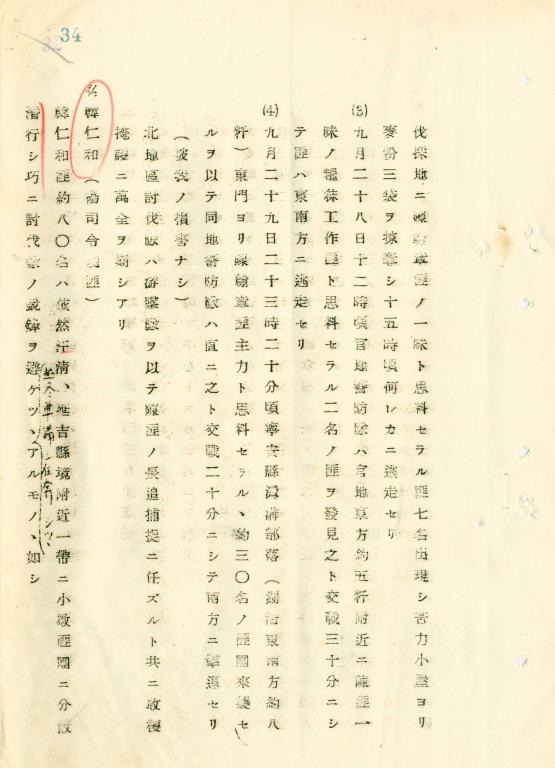 34
伐採地ニ陳翰章匪ノ一味ト思料セラル匪七名出現シ苦力小屋ヨリ
麥粉三袋ヲ掠奪シ十五時頃何レカニ逃走セリ
(3) 九月二十八日十二時頃官地警防隊ハ官地東方約五粁附近ニ陳匪一
味ノ糧秣工作匪ト思料セラル二名ノ匪ヲ發見之ト交戰三十分ニシ
テ匪ハ東南方ニ逃走セリ
(4) 九月二十九日二十三時二十分頃寧安縣灣溝部落(湖沿東南方約八
粁)東門ヨリ陳翰章匪主力ト思料セラル、約三〇名ノ匪團來襲セ
ルヲ以テ同地警防隊ハ直ニ之ト交戰二十分ニシテ南方ニ擊退セリ
(彼我ノ損害ナシ)
北地區討伐隊ハ游擊隊ヲ以テ陳匪ノ長追捕捉ニ任ズルト共ニ收穫
掩護ニ萬全ヲ期シアリ
韓仁和(楊司令 匪)
韓仁和匪約八〇名ハ依然汪清、延吉縣境附近一帶ニ小數匪團ニ分散
潛行シ巧ニ討伐隊ノ銳鋒ヲ避ケツ、アルモノ、如シ